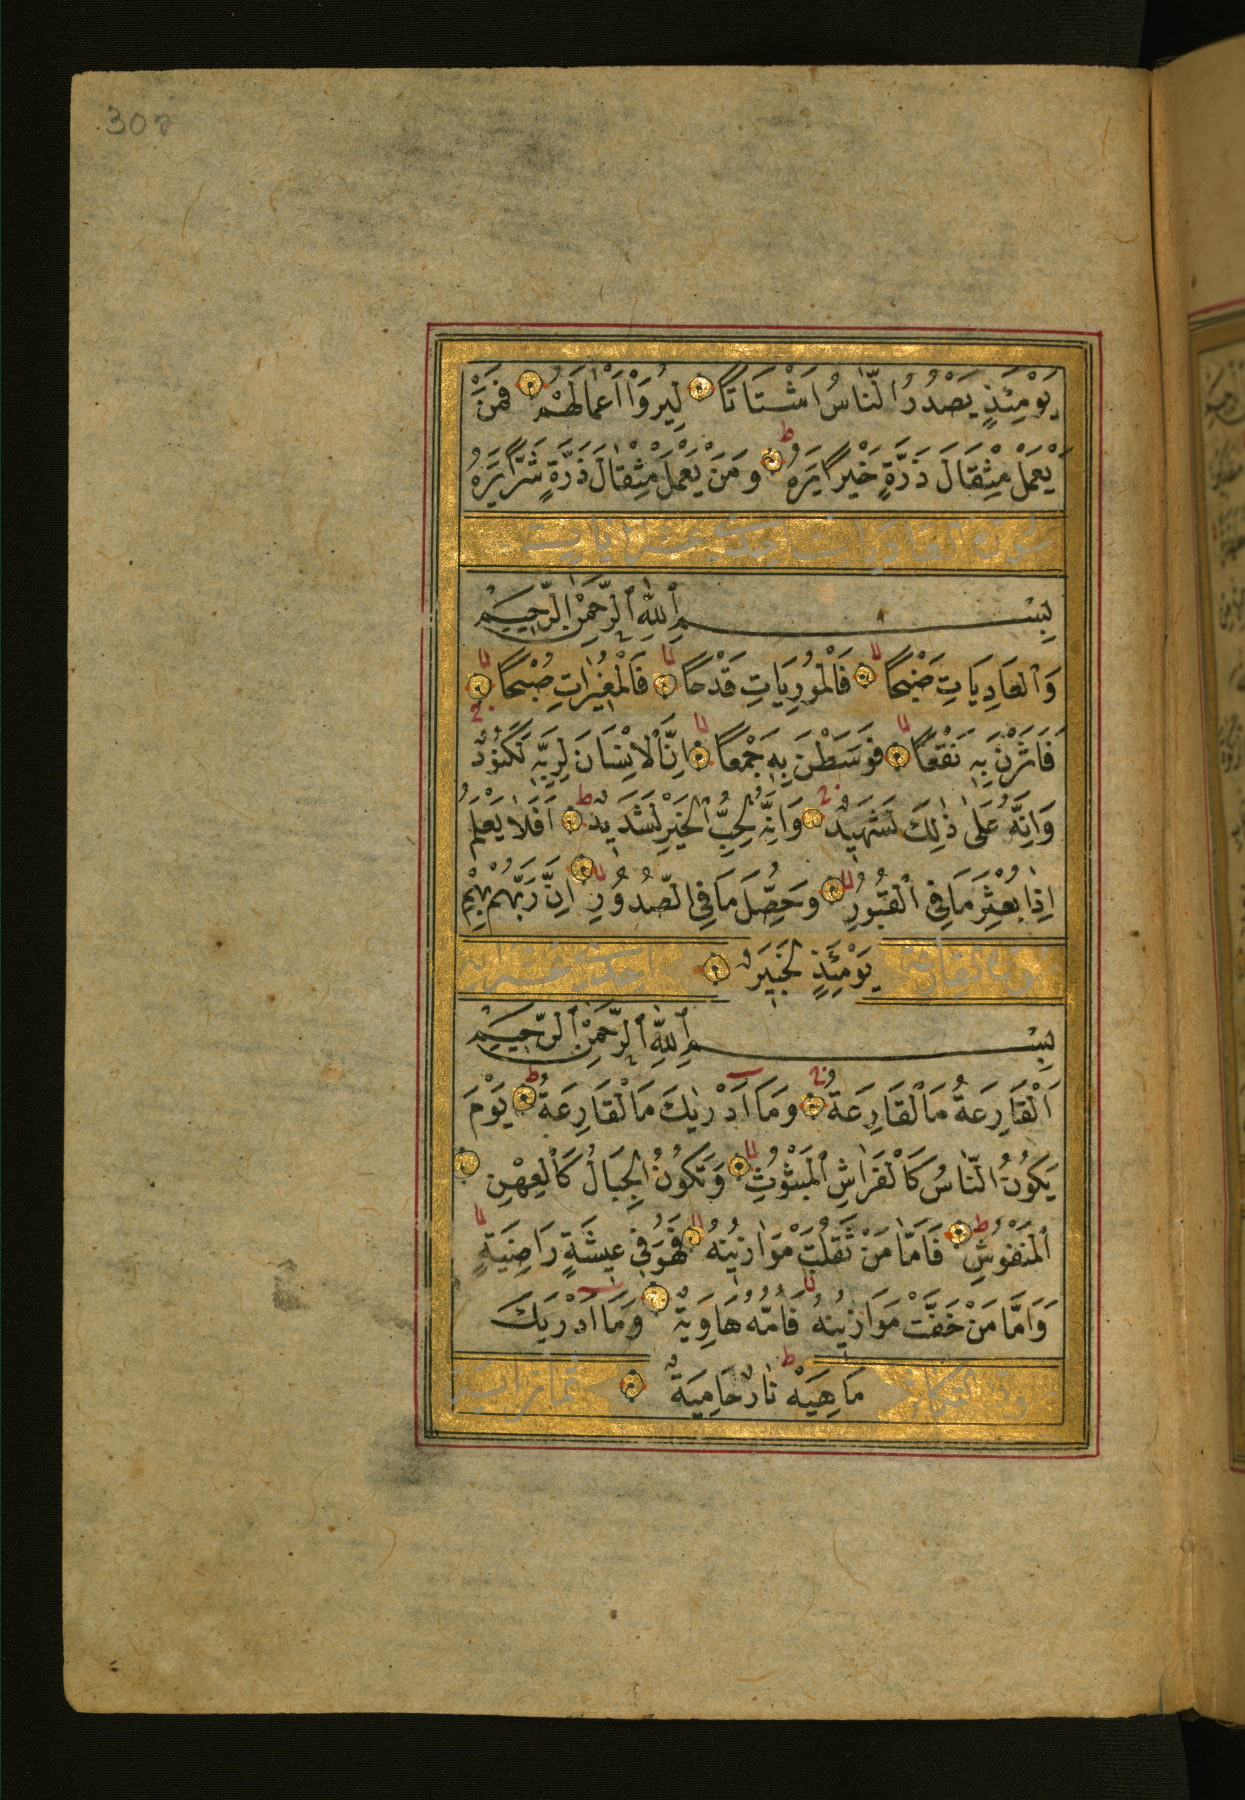 307
يَوْمَئِذٍ يَصْدُرُ النَّاسُ اَشْتَاتًا لِيُرَوْا اَعْمَالَهُمْ فَمَنْ
يَعْمَلْ مِثْقَالَ ذَرَّةٍ خَيْرًا يَرَهُ وَمَنْ يَعْمَلْ مِثْقَالَ ذَرَّةٍ شَرًّا يَرَهُ
سورة العاديات احدى عشر ايات
بِسْمِ اللهِ الرَّحْمٰنِ الرَّحِيمِ
وَالْعَادِيَاتِ ضَبْحًا فَالْمُورِيَاتِ قَدْحًا فَالْمُغِيرَاتِ صُبْحًا
فَاَثَرْنَ بِهِ نَقْعًا فَوَسَطْنَ بِهِ جَمْعًا اِنَّ الْاِنْسَانَ لِرَبِّهِ لَكَنُودٌ
وَاِنَّهُ عَلٰى ذٰلِكَ لَشَهِيدٌ وَاِنَّهُ لِحُبِّ الْخَيْرِ لَشَدِيدٌ اَفَلَا يَعْلَمُ
اِذَا بُعْثِرَ مَا فِي الْقُبُورِ وَحُصِّلَ مَا فِي الصُّدُورِ اِنَّ رَبَّهُمْ بِهِمْ
يَوْمَئِذٍ لَخَبِيرٌ احدى عشر اية
بِسْمِ اللهِ الرَّحْمٰنِ الرَّحِيمِ
اَلْقَارِعَةُ مَا الْقَارِعَةُ وَمَا اَدْرٰيكَ مَا الْقَارِعَةُ يَوْمَ
يَكُونُ النَّاسُ كَالْفَرَاشِ الْمَبْثُوثِ وَتَكُونُ الْجِبَالُ كَالْعِهْنِ
الْمَنْفُوشِ فَاَمَّا مَنْ ثَقُلَتْ مَوَازِينُهُ فَهُوَ فِي عِيشَةٍ رَاضِيَةٍ
وَاَمَّا مَنْ خَفَّتْ مَوَازِينُهُ فَاُمُّهُ هَاوِيَةٌ وَمَا اَدْرٰيكَ
مَا هِيَهْ نَارٌ حَامِيَةٌ